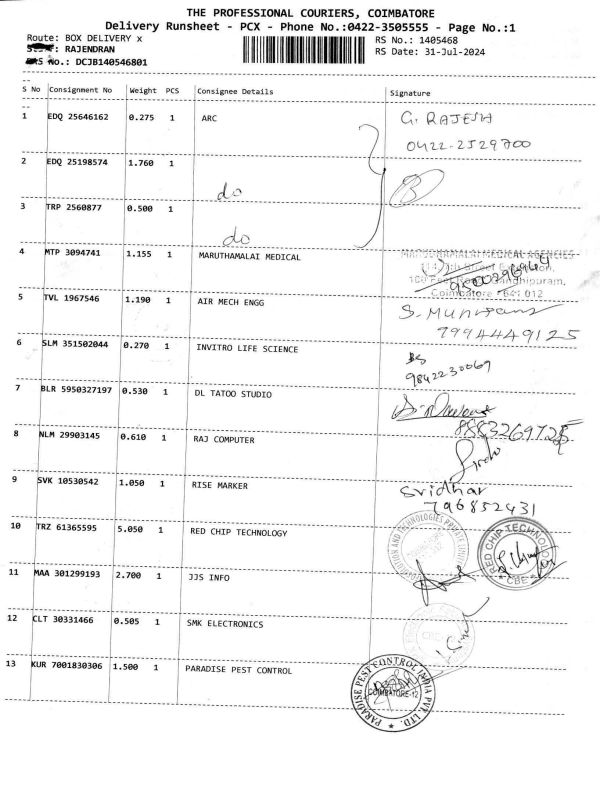 THE PROFESSIONAL COURIERS, COIMBATORE
Delivery Runsheet - PCX - Phone No.:0422-3505555 - Page No.:1
Route: BOX DELIVERY x
RS No.: 1405468
: RAJENDRAN
RS Date: 31-Jul-2024
No.: DCJB140546801
S No Consignment No Weight PCS Consignee Details Signature
1 EDQ 25646162 0.275 1 ARC G. RAJESH
0422-2529700
2 EDQ 25198574 1.760 1
do
3 TRP 2560877 0.500 1
do
4 MTP 3094741 1.155 1 MARUTHAMALAI MEDICAL MARUTHAMALAI MEDICAL AGENCIES
Gandhipuram,
Coimbatore - 641 012
5 TVL 1967546 1.190 1 AIR MECH ENGG
7994449125
6 SLM 351502044 0.270 1 INVITRO LIFE SCIENCE
9842230069
7 BLR 5950327197 0.530 1 DL TATOO STUDIO
8 NLM 29903145 0.610 1 RAJ COMPUTER
9 SVK 10530542 1.050 1 RISE MARKER Sridhar
796852431
10 TRZ 61365595 5.050 1 RED CHIP TECHNOLOGY
RED CHIP TECHNOLOGY
CBE
11 MAA 301299193 2.700 1 JJS INFO
12 CLT 30331466 0.505 1 SMK ELECTRONICS
13 KUR 7001830306 1.500 1 PARADISE PEST CONTROL
PARADISE PEST CONTROL INDIA PVT. LTD.
COIMBATORE-12